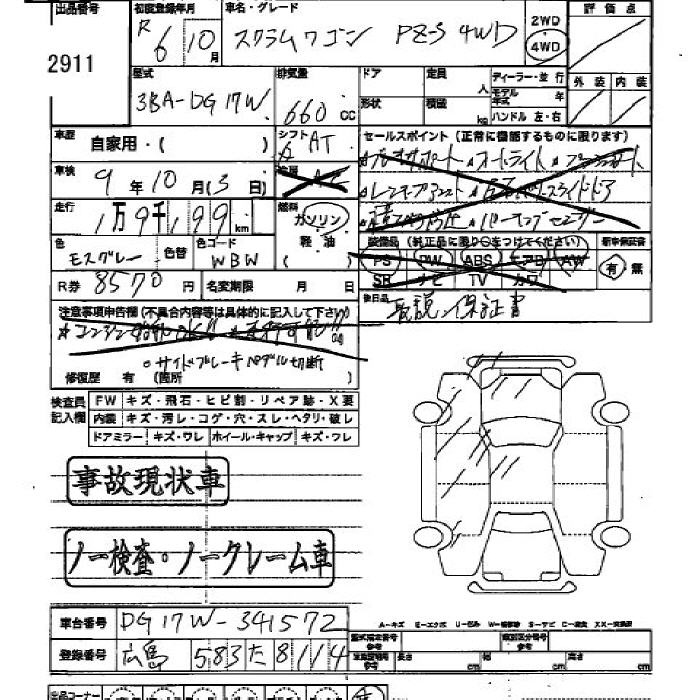 出品番号 初度登録年月 車名・グレード 評価点
2911 R 6 10月 スクラムワゴン PZ-S 4WD 2WD 4WD
型式 排気量 ドア 定員 ディーラー・並行 外装 内装
3BA-DG17W 660 CC 人 モデル年式 年
形状 積載 kg ハンドル 左・右
車歴 自家用・( ) シフト AT セールスポイント (正常に機能するものに限ります)
オートライト
車検 9年10月(3日)
レーンキープアシスト
走行 1万9千199km 燃料 ガソリン 軽油 ( )
パーキングセンサー
色 モスグレー 色替 色コード WBW 装備品 (純正品に限り○をつけてください) 新車保証書
PS PW ABS エアB AW 有・無
SR ナビ TV カワ
R券 8570円 名変期限 月 日 後日品 取説、保証書
注意事項申告欄 (不具合内容等は具体的に記入して下さい)
○サイドブレーキペダル切断
修復歴 有 (箇所 )
検査員記入欄 FW キズ・飛石・ヒビ割・リペア跡・X要
内装 キズ・汚レ・コゲ・穴・スレ・ヘタリ・破レ
ドアミラー キズ・ワレ ホイール・キャップ キズ・ワレ
事故現状車
ノー検査・ノークレーム車
A-キズ E-エクボ U-ヒサ゛ S-サビ C-腐食
車台番号 DG17W-341572 型式指定番号 参考 類別区分番号 参考
登録番号 広島 583 た 8114 参考 長さ cm 幅 cm 高さ cm
出品コーナー